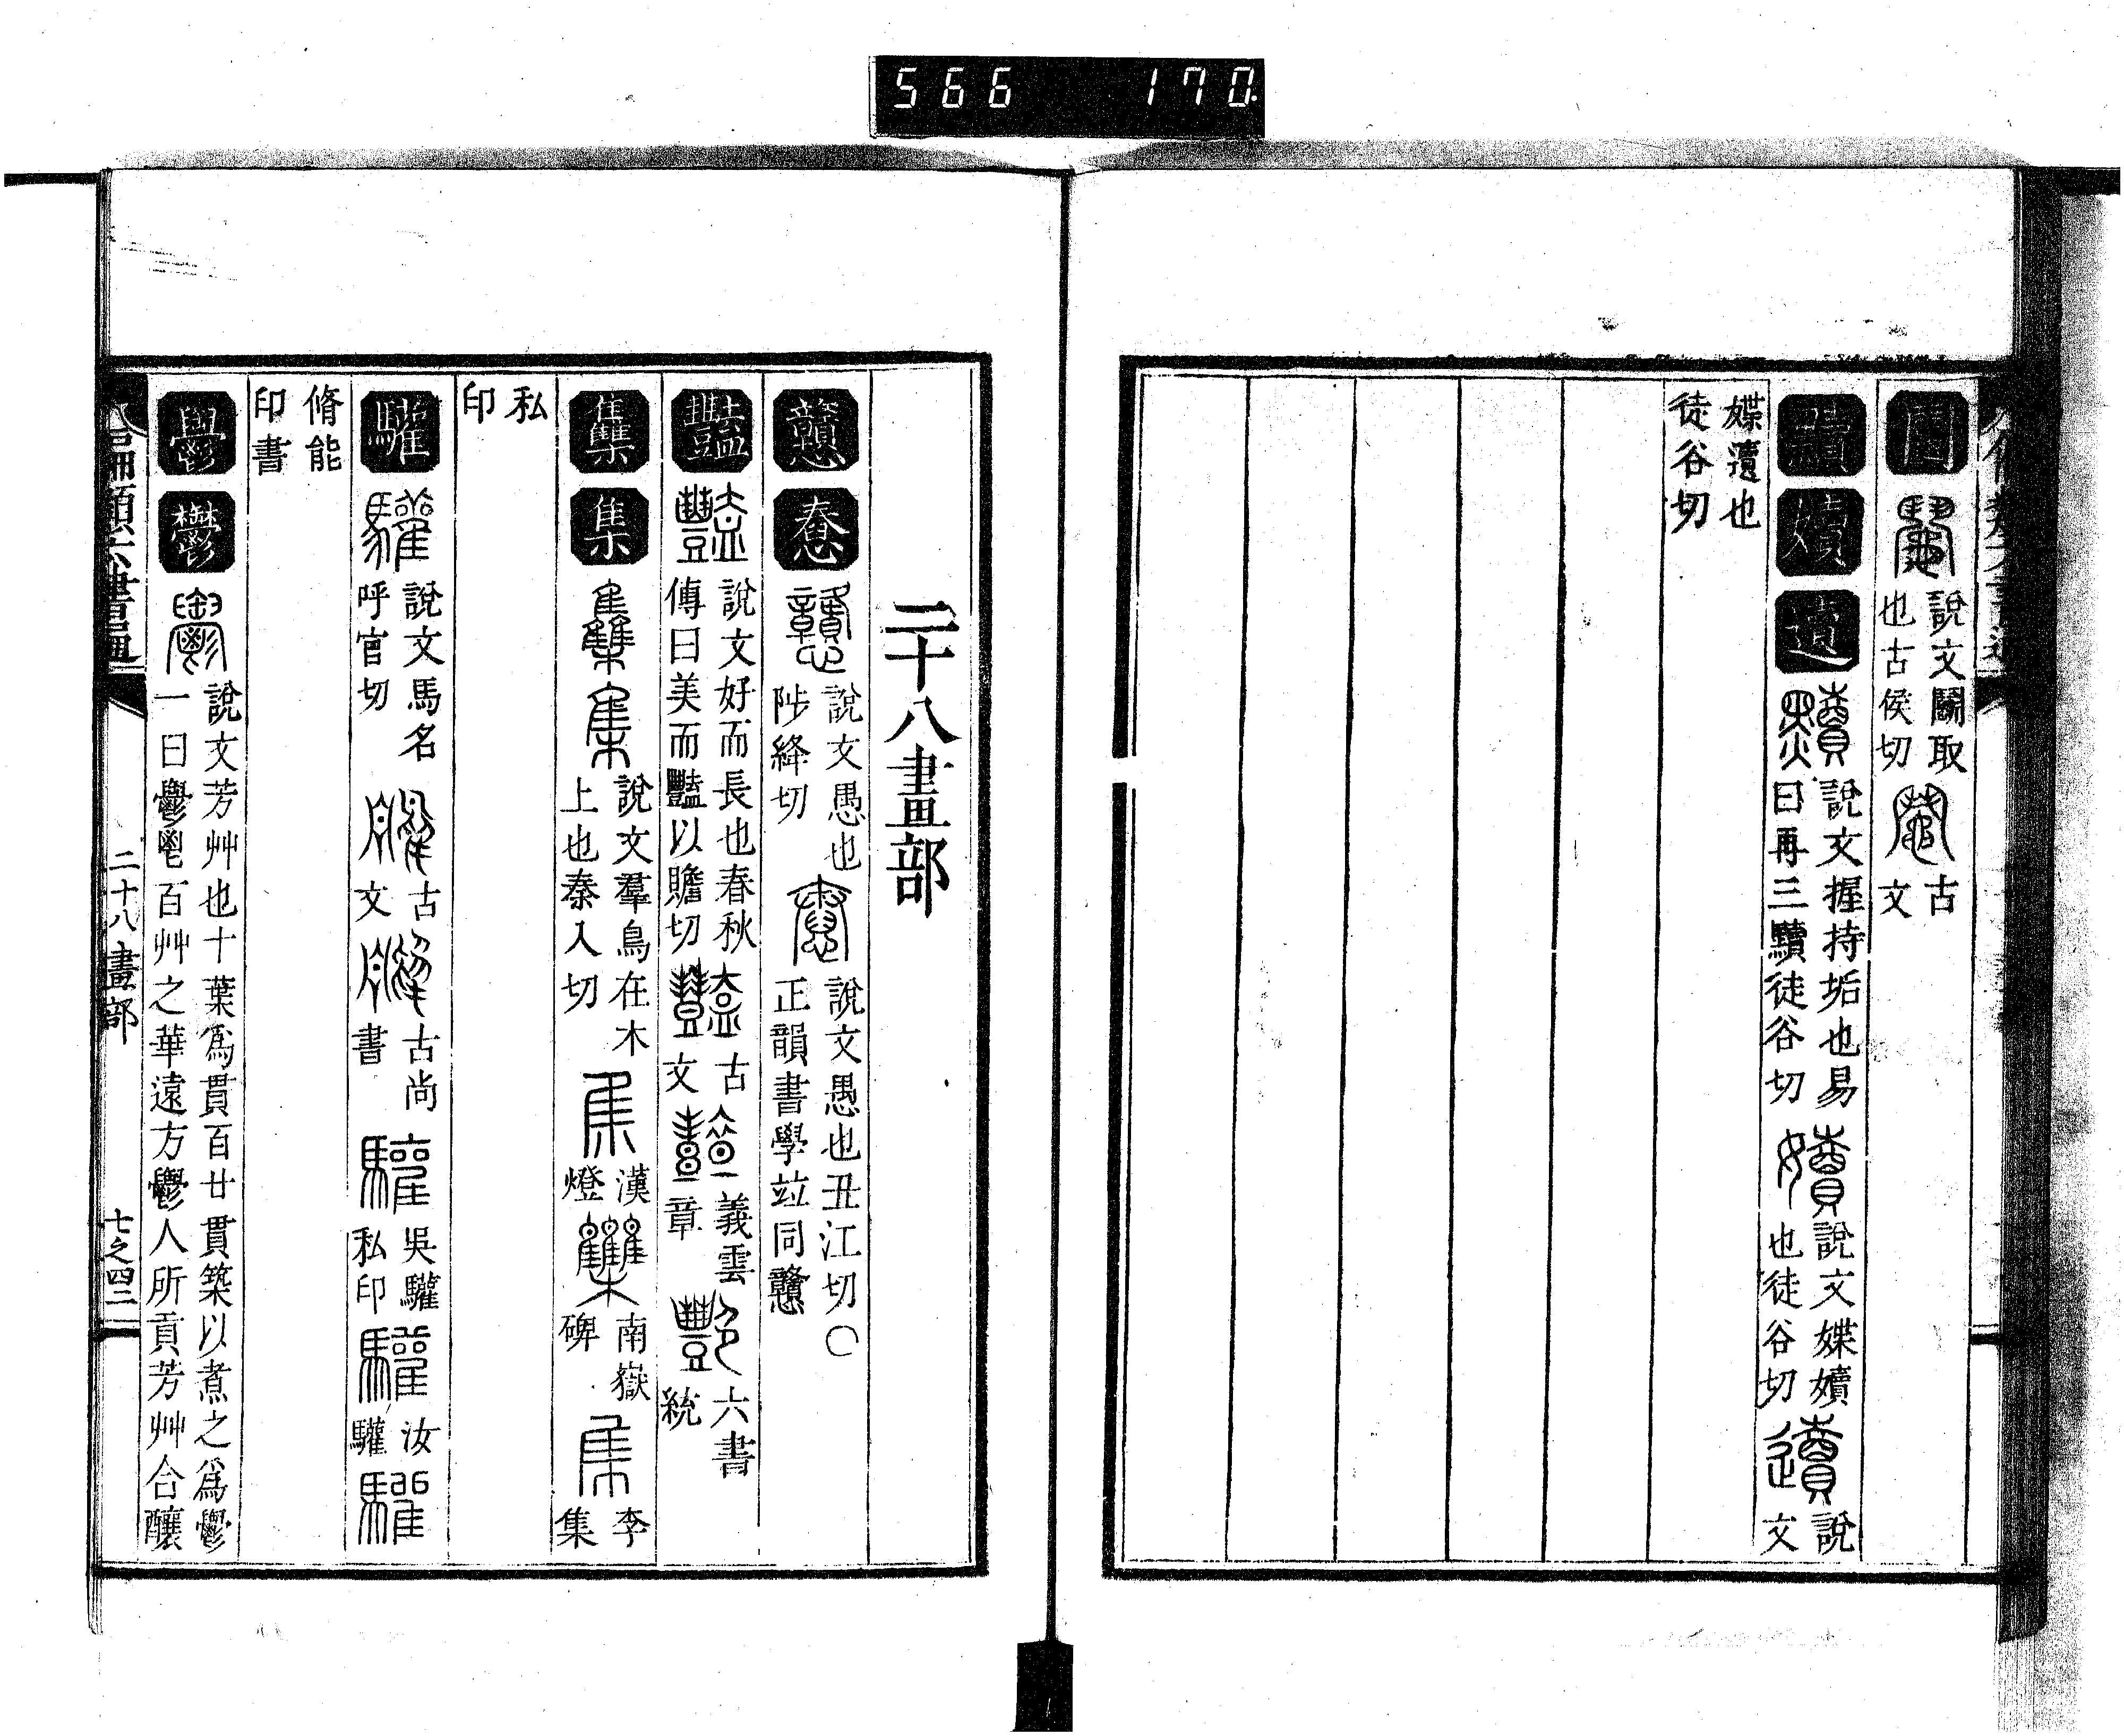 566 170.
說文鬭取
也古侯切
古
文
說文握持垢也易
曰再三黷徒谷切
說文媟嬻
也徒谷切
說
文
媟瀆也
徒谷切
二十八畫部
戇
說文愚也
陟絳切
說文愚也丑江切〇
正韻書學竝同戇
豔
說文好而長也春秋
傳曰美而豔以贍切
古
文
義雲
章
六書
統
雧集
說文羣鳥在木
上也秦入切
漢
燈
南嶽
碑
李
集
私
印
驩
說文馬名
呼官切
古
文
古尚
書
吳驩
私印
汝
驩
脩能
印書
鬱
說文芳艸也十葉爲貫百廿貫築以煮之爲鬱
一曰鬱鬯百艸之華遠方鬱人所貢芳艸合釀
二十八畫部
七之四二